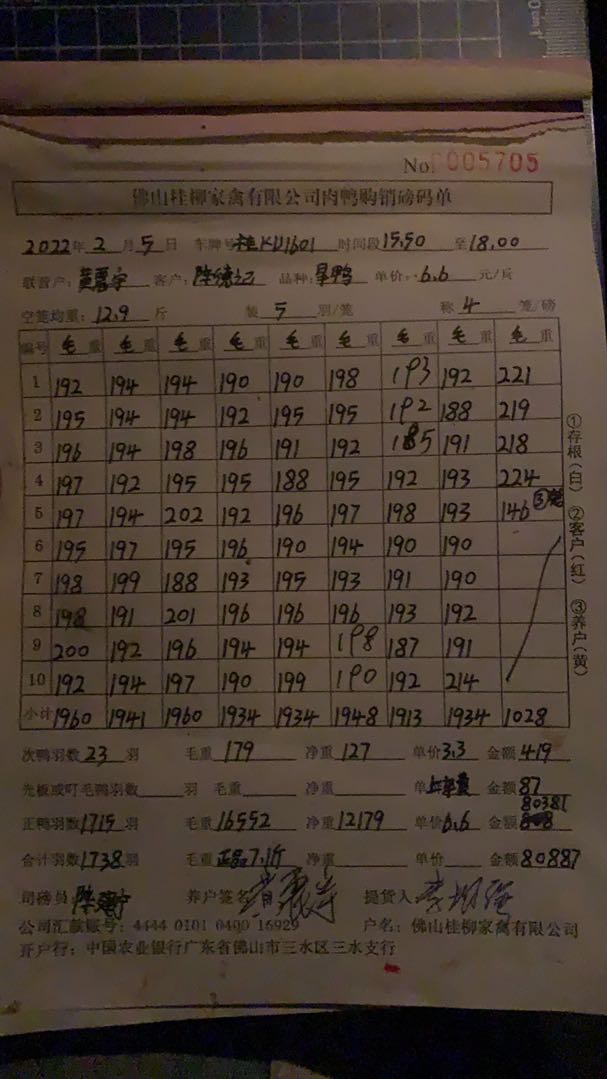 No. 0005705
佛山桂柳家禽有限公司肉鸭购销磅码单
2022年2月5日 车牌号桂KU1601 时间段15.50至18.00
联营户: 客户: 品种: 旱鸭 单价: 6.6 元/斤
空笼均重: 12.9 斤 装 5 羽/笼 称 4 笼/磅
编号 毛重 毛重 毛重 毛重 毛重 毛重 毛重 毛重 毛重
1 192 194 194 190 190 198 193 192 221
2 195 194 194 192 195 195 192 188 219
3 196 194 198 196 191 192 185 191 218
4 197 192 195 195 188 195 192 193 224
5 197 194 202 192 196 197 198 193 146 ③笼
6 195 197 195 196 190 194 190 190
7 198 199 188 193 195 193 191 190
8 198 191 201 196 196 196 193 192
9 200 192 196 194 194 198 187 191
10 192 194 197 190 199 190 192 214
小计 1960 1941 1960 1934 1934 1948 1913 1934 1028
①存根(白) ②客户(红) ③养户(黄)
次鸭羽数 23 羽 毛重 179 净重 127 单价 3.3 金额 419
先板或叮毛鸭羽数 羽 毛重 净重 单 金额 87
80381
正鸭羽数 1715 羽 毛重 16552 净重 12179 单价 6.6 金额
合计羽数 1738 羽 毛重 正品7.1斤 净重 单价 金额 80887
司磅员 养户签名 提货人
公司汇款账号: 4444 0101 0400 16929 户名: 佛山桂柳家禽有限公司
开户行: 中国农业银行广东省佛山市三水区三水支行